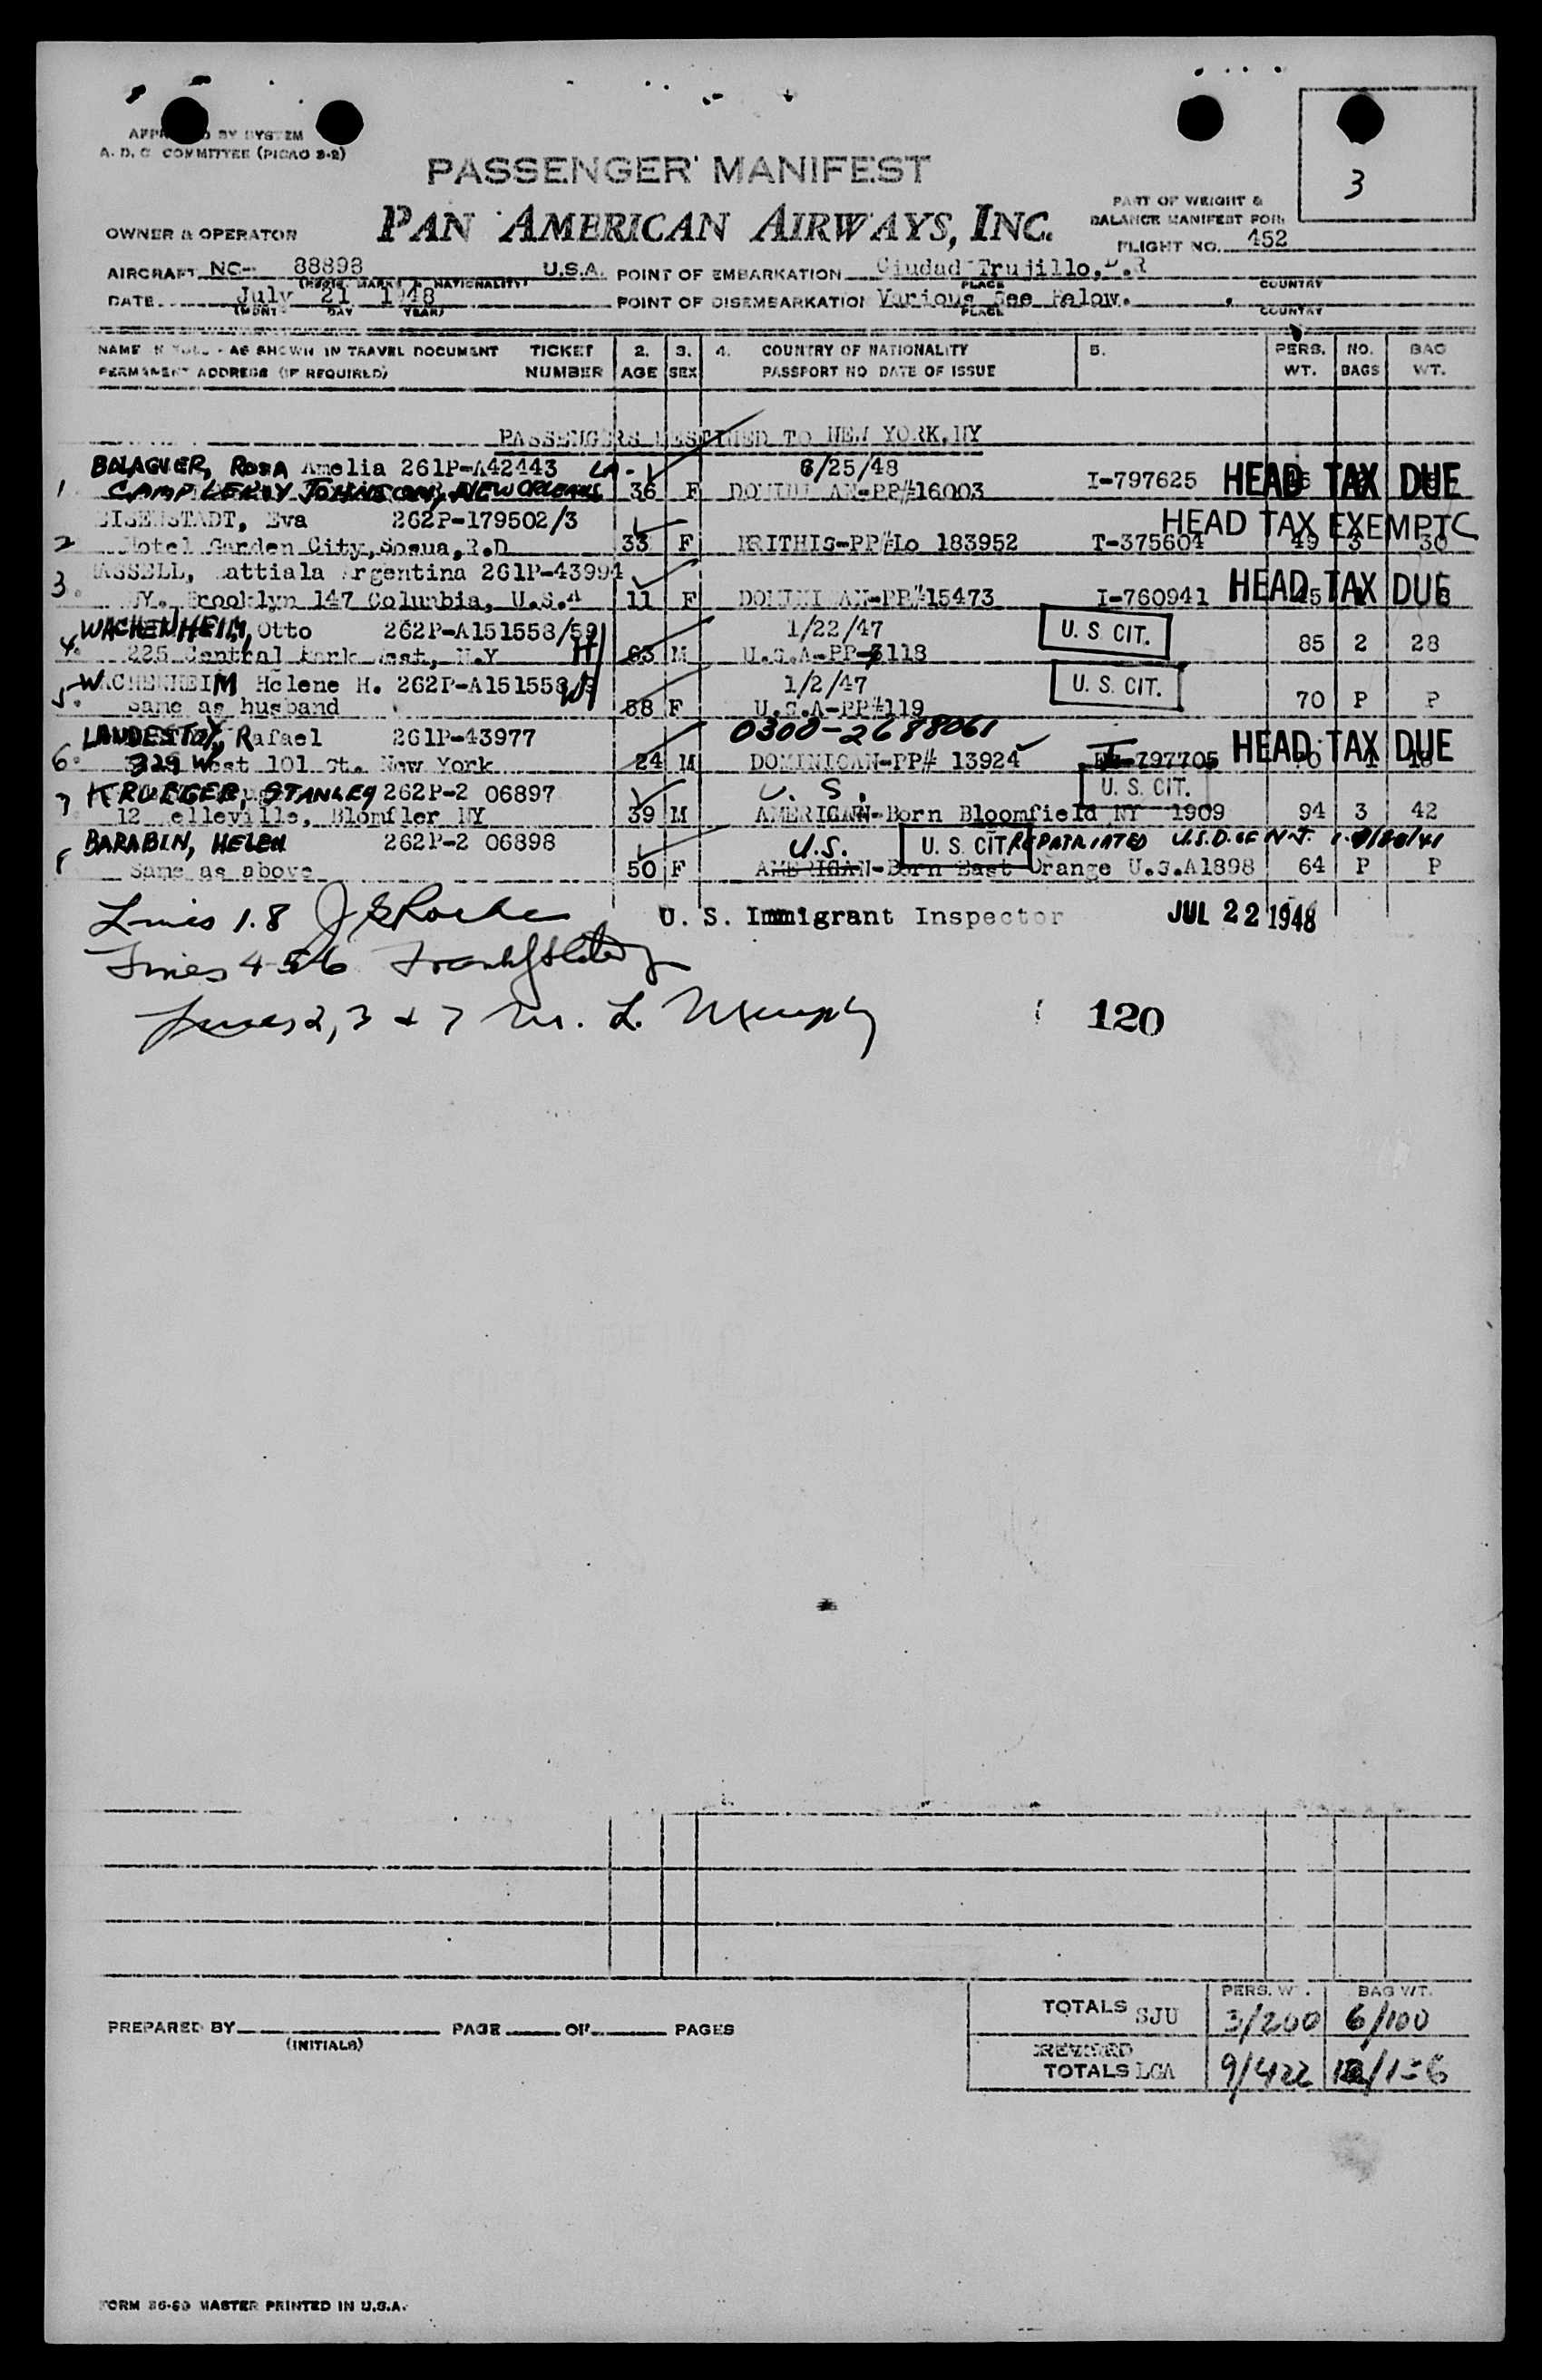 BY SYSTEM
A. D. C COMMITTEE (PICAO S-2)
3
PASSENGER MANIFEST
PART OF WEIGHT &
BALANCE MANIFEST FOR
OWNER & OPERATOR PAN AMERICAN AIRWAYS, INC.
FLIGHT NO. 452
AIRCRAFT NC- 88898 U.S.A. POINT OF EMBARKATION Ciudad Trujillo, D.R
NATIONALITY PLACE COUNTRY
DATE July 21 1948 POINT OF DISEMBARKATION Various See Below.
DAY YEAR PLACE COUNTRY
NAME AS SHOWN IN TRAVEL DOCUMENT TICKET 2. 3. 4. COUNTRY OF NATIONALITY 5. PERS. NO. BAG
PERMANENT ADDRESS (IF REQUIRED) NUMBER AGE SEX PASSPORT NO DATE OF ISSUE WT. BAGS WT.
PASSENGERS DESTINED TO NEW YORK, NY
BALAGUER, ROSA Amelia 261P-A42443 LA- 6/25/48
1 CAMP LEROY JOHNSON, NEW ORLEANS 36 F DOMINICAN-PP#16003 I-797625 HEAD TAX DUE
EISENSTADT, Eva 262P-179502/3 HEAD TAX EXEMPT C
2 Hotel Garden City, Sosua, R.D 33 F BRITHIS-PP#Lo 183952 T-375604 49 3 30
Argentina 261P-43994
3. NY. Brooklyn 147 Columbia, U.S.A 11 F DOMINICAN-PP#15473 I-760941 HEAD TAX DUE
WACHENHEIM, Otto 262P-A151558/59 1/22/47 U. S. CIT.
4. 225 Central Park West, N.Y H 63 M U.S.A-PP-118 85 2 28
WACHENHEIM Helene H. 262P-A151558 1/2/47 U. S. CIT.
5. Same as husband 58 F U.S.A-PP#119 70 P P
LANDESTOY, Rafael 261P-43977 0300-2688061
6. 329 West 101 St. New York 24 M DOMINICAN-PP# 13924 797705 HEAD TAX DUE
7 KRUEGER, STANLEY 262P-2 06897 U. S. U. S. CIT.
12 Belleville, Blomfler NY 39 M AMERICAN-Born Bloomfield NY 1909 94 3 42
BARABIN, HELEN 262P-2 06898 U.S. U. S. CIT. REPATRIATED U.S.D. OF N.J.
8 Same as above 50 F AMERICAN-Born East Orange U.S.A 1898 64 P P
Lines 1.8 U. S. Immigrant Inspector JUL 22 1948
Lines 4-5-6
Lines 2, 3 & 7 M. L. Murphy 120
TOTALS SJU PERS. WT. 3/200 BAG WT. 6/100
PREPARED BY PAGE OF PAGES
(INITIALS)
REVISED
TOTALS LGA 9/422
FORM 86-60 MASTER PRINTED IN U.S.A.